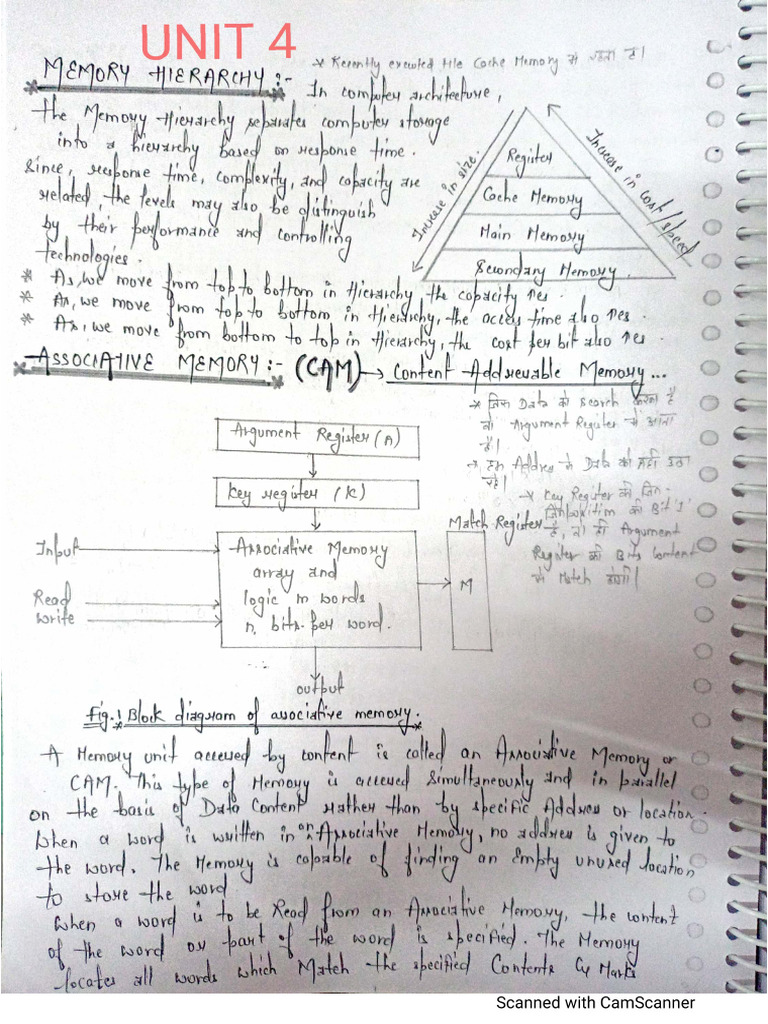 UNIT 4
* Recently executed file Cache Memory में रहता है।
* MEMORY HIERARCHY :- *
In computer architecture,
the Memory Hierarchy separates computer storage
into a hierarchy based on response time.
Since, response time, complexity, and capacity are
related, the levels may also be distinguish
by their performance and controlling
technologies.
Increase in size.
Register
Cache Memory
Main Memory
Secondary Memory.
Increase in cost/speed
* As, we move from top to bottom in Hierarchy, the capacity ↑es.
* As, we move from top to bottom in Hierarchy, the access time also ↑es.
* As, we move from bottom to top in Hierarchy, the cost per bit also ↑es.
* ASSOCIATIVE MEMORY :- * (CAM) → Content Addressable Memory...
* जिस Data को Search करना है
वो Argument Register में आता
है।
* हम Address से Data को नहीं उठा
रहे।
* Key Register की जिन
जिन position की Bit '1'
है, वो ही Argument
Register की Bits Content
से Match होगी।
Argument Register (A)
Key register (K)
Match Register
Input
Read
Write
Associative Memory
array and
logic m words
n, bits per word.
M
output
Fig.! Block diagram of associative memory.
A Memory unit accessed by content is called an Associative Memory or
CAM. This type of Memory is accessed Simultaneously and in parallel
on the basis of Data Content rather than by specific Address or location.
When a word is written in an Associative Memory, no address is given to
the word. The Memory is capable of finding an Empty unused location
to store the word
When a word is to be Read from an Associative Memory, the content
of the word or part of the word is specified. The Memory
locates all words which Match the specified Contents & Marks
Scanned with CamScanner